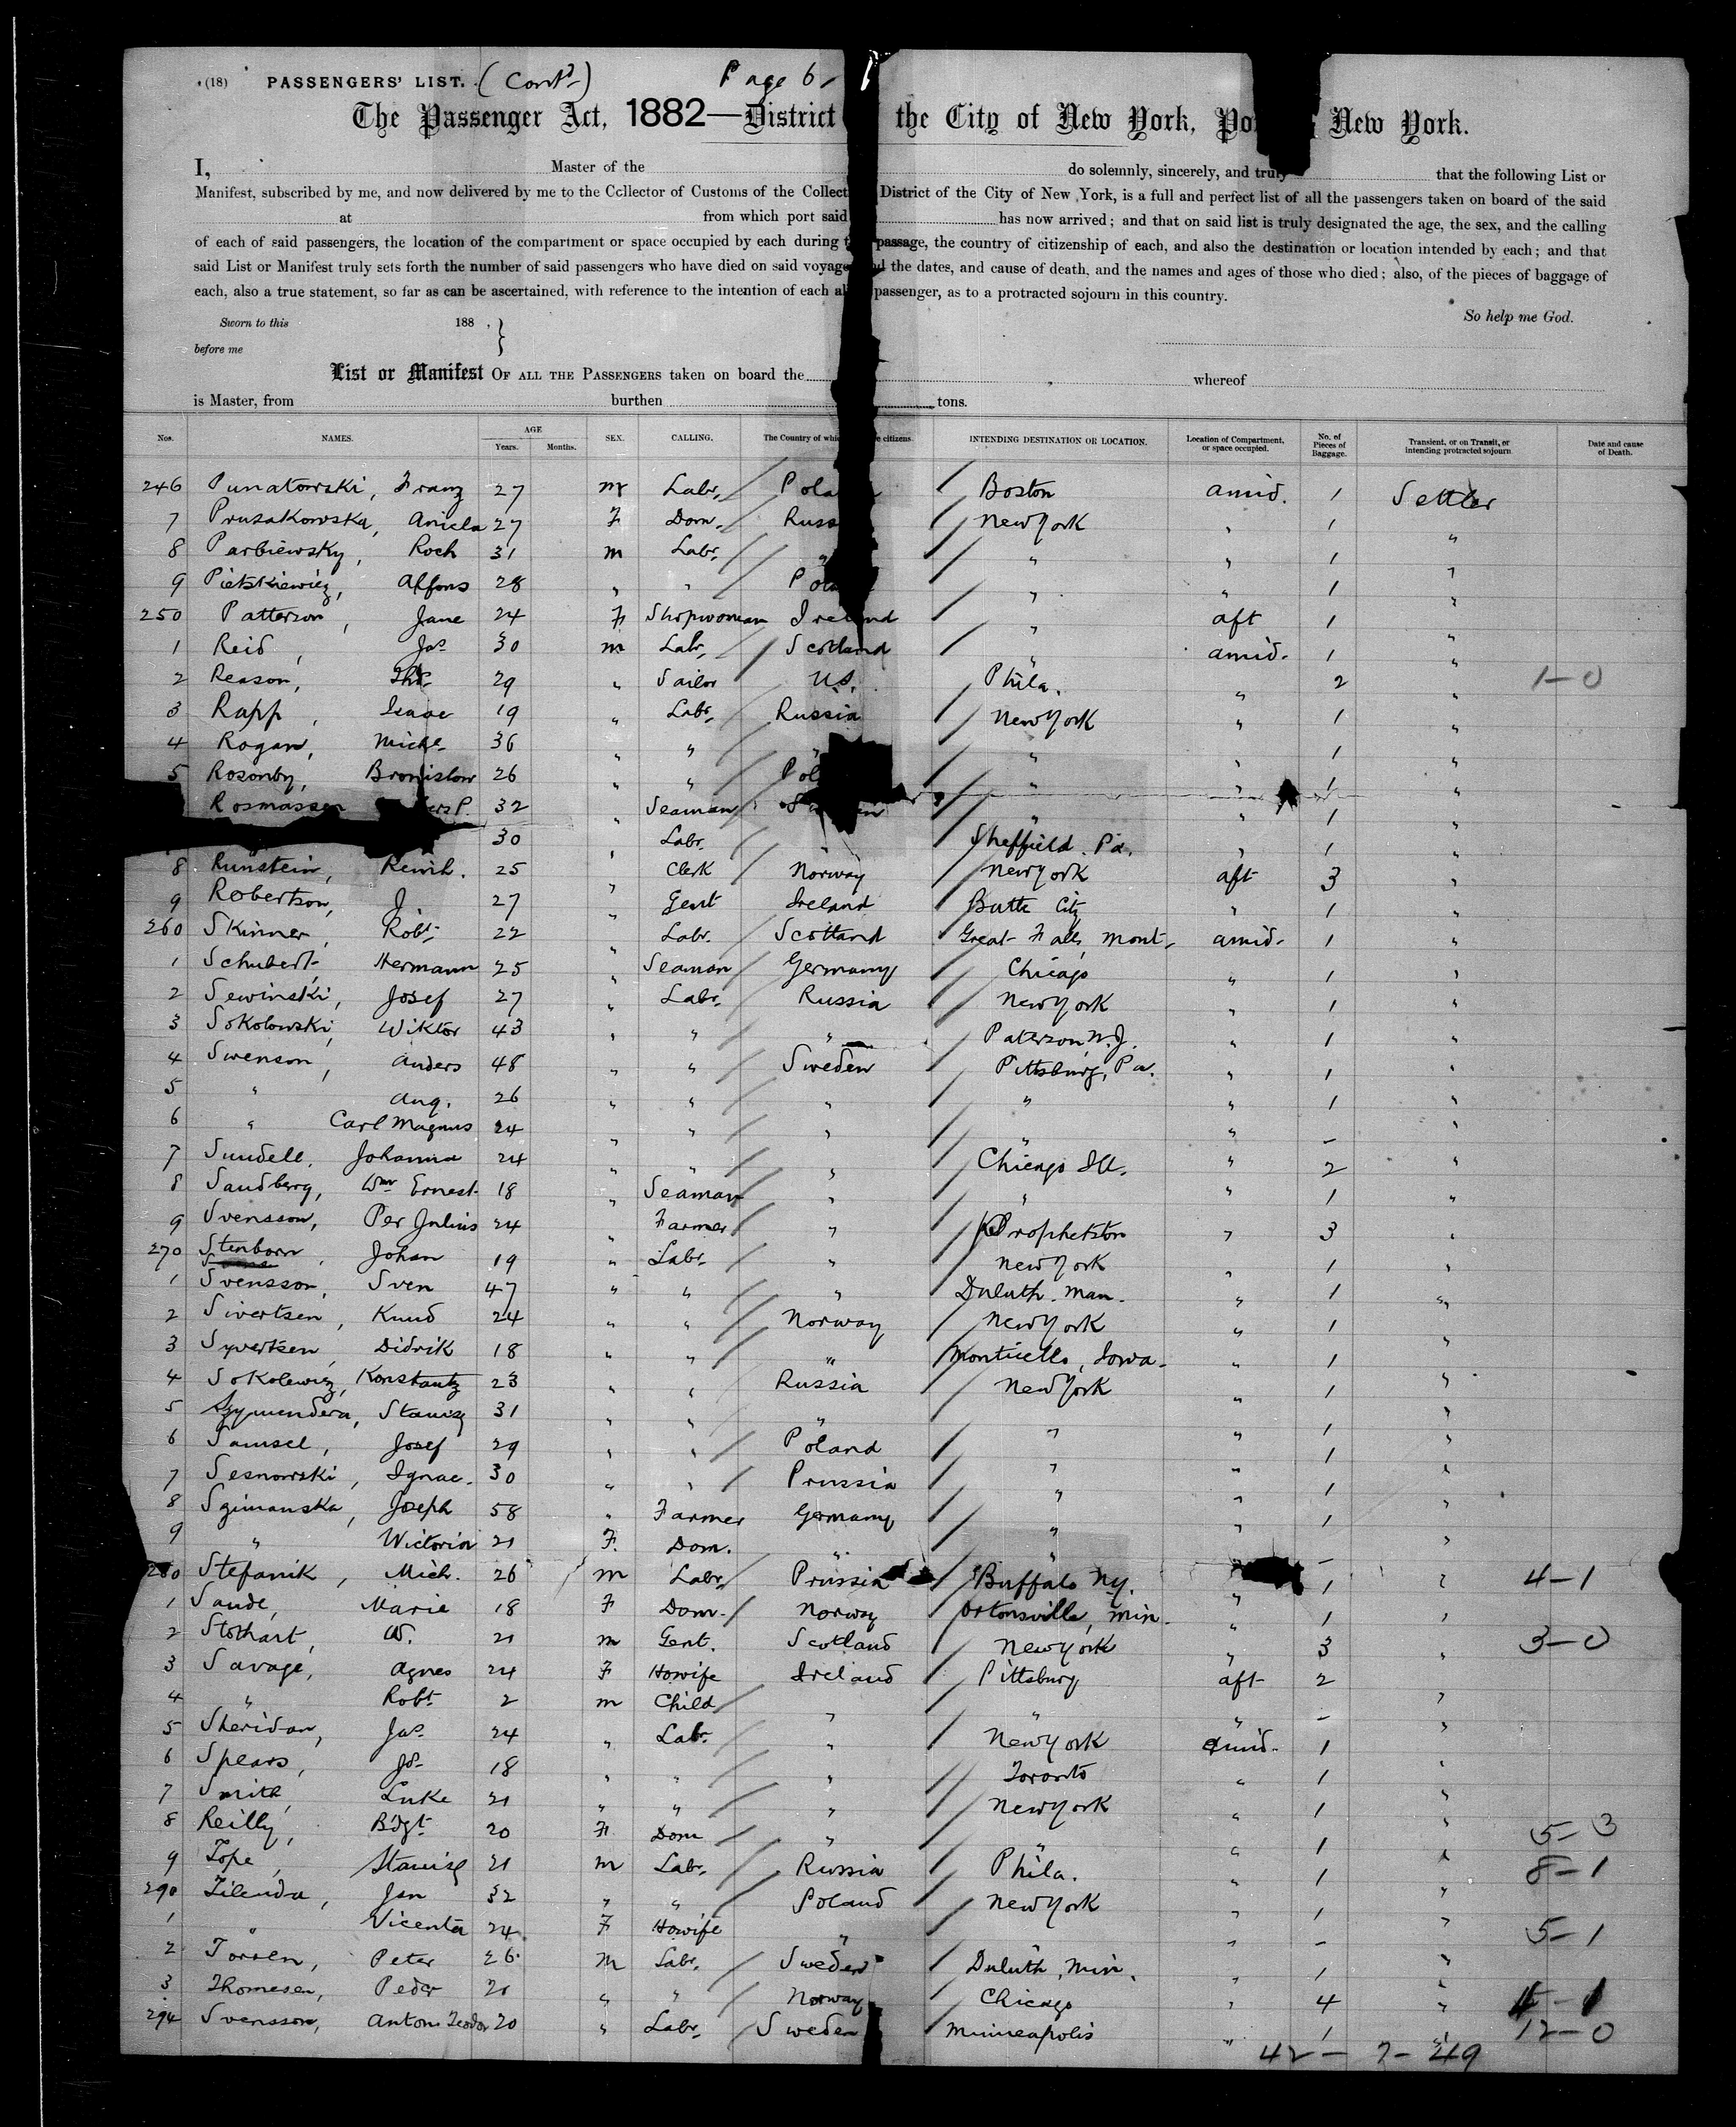 (18) PASSENGERS' LIST. (Contd) Page 6
The Passenger Act, 1882—District the City of New York, Po New York.
I, Master of the do solemnly, sincerely, and truly that the following List or
Manifest, subscribed by me, and now delivered by me to the Collector of Customs of the Collect District of the City of New York, is a full and perfect list of all the passengers taken on board of the said
at from which port said has now arrived; and that on said list is truly designated the age, the sex, and the calling
of each of said passengers, the location of the compartment or space occupied by each during t passage, the country of citizenship of each, and also the destination or location intended by each; and that
said List or Manifest truly sets forth the number of said passengers who have died on said voyage the dates, and cause of death, and the names and ages of those who died; also, of the pieces of baggage of
each, also a true statement, so far as can be ascertained, with reference to the intention of each al passenger, as to a protracted sojourn in this country.
So help me God.
Sworn to this 188 ,
before me
List or Manifest OF ALL THE PASSENGERS taken on board the whereof
is Master, from burthen tons.
Nos. NAMES. AGE Years. Months. SEX. CALLING. The Country of whi citizens. INTENDING DESTINATION OR LOCATION. Location of Compartment, or space occupied. No. of Pieces of Baggage. Transient, or on Transit, or intending protracted sojourn Date and cause of Death.
246 Punatowski, Franz 27 m Labr. Pola Boston amid. 1 Settler
7 Prusakowska, Aniela 27 F Dom. Russ New York " 1 "
8 Parbiewsky, Roch 31 m Labr. " " " 1 "
9 Pietskiewiz, Alfons 28 " " Pola " " 1 "
250 Patterson, Jane 24 F Shopwoman Ireland " aft 1 "
1 Reid, Jas 30 m Labr. Scotland " amid. 1 "
2 Reason, Thos 29 " Sailor U.S. Phila. " 2 " 1-0
3 Rapp, Isaac 19 " Labr. Russia New York " 1 "
4 Rogan, Michl 36 " " " " " 1 "
5 Rosonby, Bronislow 26 " " Pol " " 1 "
Rosmassen ers P. 32 " Seaman S en " " 1 "
30 " Labr. Sheffield. Pa. " 1 "
8 Runstein, Reinh. 25 " Clerk Norway New York aft 3 "
9 Robertson, J 27 " Gent Ireland Butte City " 1 "
260 Skinner, Robt 22 " Labr. Scotland Great Falls Mont. amid. 1 "
1 Schubert, Hermann 25 " Seaman Germany Chicago " 1 "
2 Sewinski, Josef 27 " Labr. Russia New York " 1 "
3 Sokolowski, Wiktor 43 " " " Paterson, N.J. " 1 "
4 Swenson, Anders 48 " " Sweden Pittsburg, Pa. " 1 "
5 " Aug. 26 " " " " " 1 "
6 " Carl Magnus 24 " " " " " - "
7 Sundell, Johanna 24 " " " Chicago Ill. " 2 "
8 Sandberg, Wm Ernest 18 " Seaman " " " 1 "
9 Svensson, Per Julius 24 " Farmer " Prophetston " 3 "
270 Stenborn, Johan 19 " Labr. " New York " 1 "
1 Svensson, Sven 47 " " " Duluth. Man. " 1 "
2 Sivertsen, Knud 24 " " Norway New York " 1 "
3 Syvertsen, Didrik 18 " " " Monticello, Iowa. " 1 "
4 Sokolewiz, Konstantz 23 " " Russia New York " 1 "
5 Szymendera, Stanisz 31 " " " " " 1 "
6 Samsel, Josef 29 " " Poland " " 1 "
7 Sesnowski, Ignac. 30 " " Prussia " " 1 "
8 Szimanska, Joseph 58 " Farmer Germany " " 1 "
9 " Wictoria 21 F. Dom. " " - "
280 Stefanik, Mich. 26 m Labr. Prussia Buffalo NY. " 1 " 4-1
1 Saude, Marie 18 F Dom. Norway Ortonsville, Min. " 1 "
2 Stothart, W. 21 m Gent. Scotland New York " 3 " 3-0
3 Savage, Agnes 24 F Howife Ireland Pittsburg aft 2
4 " Robt 2 m Child " " " - "
5 Sheridan, Jas 24 " Labr. " New York amid. 1 "
6 Spears, Jos 18 " " " Toronto " 1 "
7 Smith, Luke 21 " " " New York " 1 "
8 Reilly, Bdgt 20 F Dom " " " 1 " 5-3
9 Tope, Stanisl 21 m Labr. Russia Phila. " 1 " 8-1
290 Zilenda, Jan 32 " " Poland New York " 1 "
1 " Vicenta 24 F Howife " " " - " 5-1
2 Torsen, Peter 26 m Labr. Sweden Duluth, Min. " 1 "
3 Thomesen, Peder 21 " " Norway Chicago " 4 "
294 Svensson, Anton Teodor 20 " Labr. Sweden Minneapolis " 1 " 12-0
42 - 7 - 49